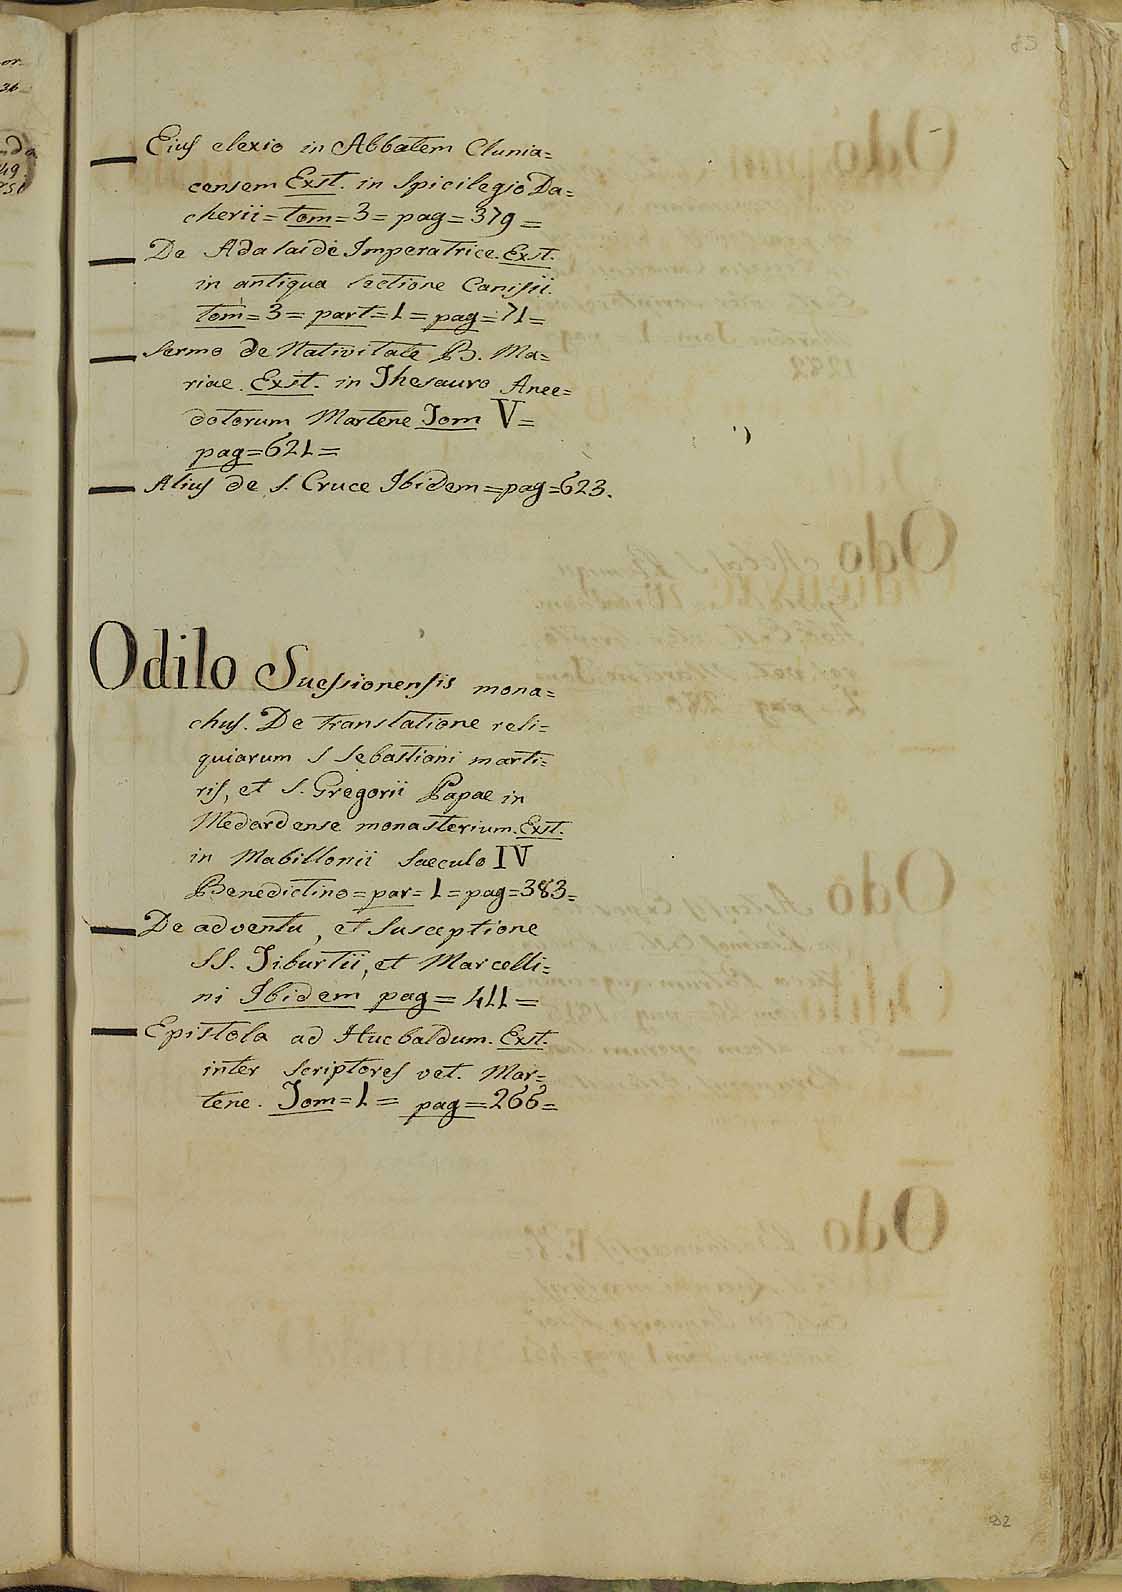 85
Eius elexio in Abbatem Clunia=
censem Exst. in Spicilegio Da=
cherii = tom = 3 = pag = 379 =
De Adalaide Imperatrice. Exst.
in antiqua lectione Canisii.
tom = 3 = part = 1 = pag = 71 =
Sermo de Nativitate B. Ma=
riae. Exst. in Thesauro Anec=
dotorum Martene Tom V =
pag = 621 =
Alius de S. Cruce Ibidem = pag = 623.
Odilo Suessionensis mona=
chus. De translatione reli=
quiarum S Sebastiani marti=
ris, et S. Gregorii Papae in
Medardense monasterium. Exst.
in Mabillonii Saeculo IV
Benedictino = par = 1 = pag = 383 =
De adventu, et susceptione
SS. Tiburtii, et Marcelli=
ni Ibidem pag = 411 =
Epistola ad Hucbaldum. Exst.
inter scriptores vet. Mar=
tene. Tom = 1 = pag = 266 =
82